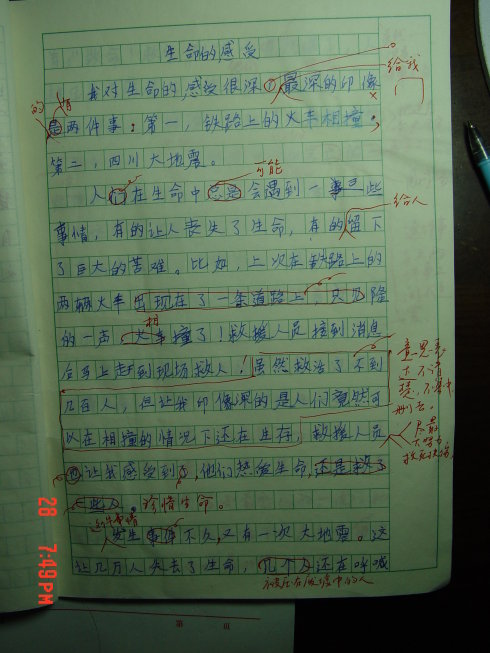 生命的感受
我对生命的感受很深，最深的印像
给我
的 情
是两件事：第一，铁路上的火车相撞；
第二，四川大地震。
可能
人们在生命中总是会遇到一些
给人
事情，有的让人丧失了生命，有的留下
了巨大的苦难。比如，上次在铁路上的
两辆火车出现在了一条道路上，只见隆
相
的一声，火车撞了！救援人员接到消息
后马上赶到现场救人！虽然救活了不到
几百人，但让我印像深的是人们竟然可
以在相撞的情况下还在生存，救援人员
意思表
让我感受到，他们热爱生命，还是救了
一些人。珍惜生命。
发生事件不久，又有一次大地震。这
让几万人失去了生命，几个人还在呼喊
28 7:49PM